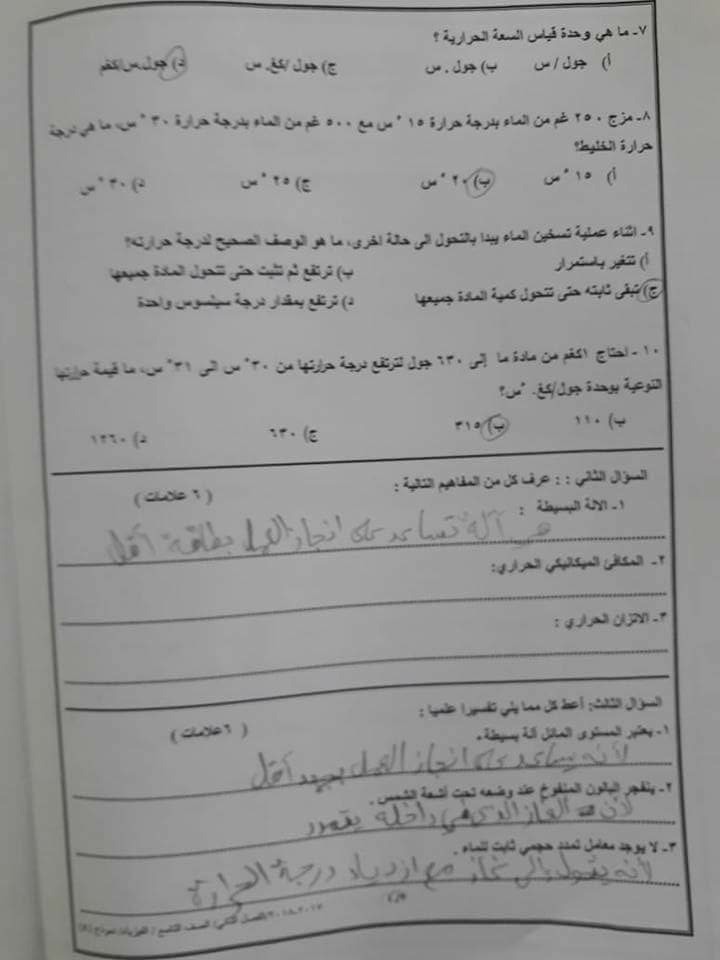 ٧- ما هي وحدة قياس السعة الحرارية ؟
أ) جول / س ب) جول . س ج) جول /كغ. س د) جول.س/كغم
٨- مزج ٢٥٠ غم من الماء بدرجة حرارة ١٥ °س مع ٥٠٠ غم من الماء بدرجة حرارة ٣٠ °س، ما هي درجة
حرارة الخليط؟
أ) ١٥ °س ب) ٢٠ °س ج) ٢٥ °س د) ٣٠ °س
٩- اثناء عملية تسخين الماء يبدا بالتحول الى حالة اخرى، ما هو الوصف الصحيح لدرجة حرارته؟
أ) تتغير باستمرار ب) ترتفع ثم تثبت حتى تتحول المادة جميعها
ج) تبقى ثابته حتى تتحول كمية المادة جميعها د) ترتفع بمقدار درجة سيلسوس واحدة
١٠- احتاج ١كغم من مادة ما إلى ٦٣٠ جول لترتفع درجة حرارتها من ٣٠ °س الى ٣١ °س، ما قيمة حرارتها
النوعية بوحدة جول/كغ. °س؟
ب) ١١٠ ب) ٣١٥ ج) ٦٣٠ د) ١٢٦٠
السؤال الثاني : : عرف كل من المفاهيم التالية : ( ٦ علامات )
١- الالة البسيطة :
هي آلة تساعد على انجاز العمل بطاقة أقل
٢- المكافئ الميكانيكي الحراري:
٣- الاتزان الحراري :
السؤال الثالث: أعط كل مما يلي تفسيرا علميا : ( ٦علامات )
١- يعتبر المستوى المائل آلة بسيطة.
لأنه يساعد على انجاز العمل بجهد أقل
٢- ينفجر البالون المنفوخ عند وضعه تحت أشعة الشمس .
لأن الغاز الذي في داخله
٣- لا يوجد معامل تمدد حجمي ثابت للماء .
لأنه يتحول إلى غاز مع ازدياد درجة الحرارة
٢٠١٧-٢٠١٨ الفصل الثاني/ الصف التاسع / الفيزياء/ نموذج